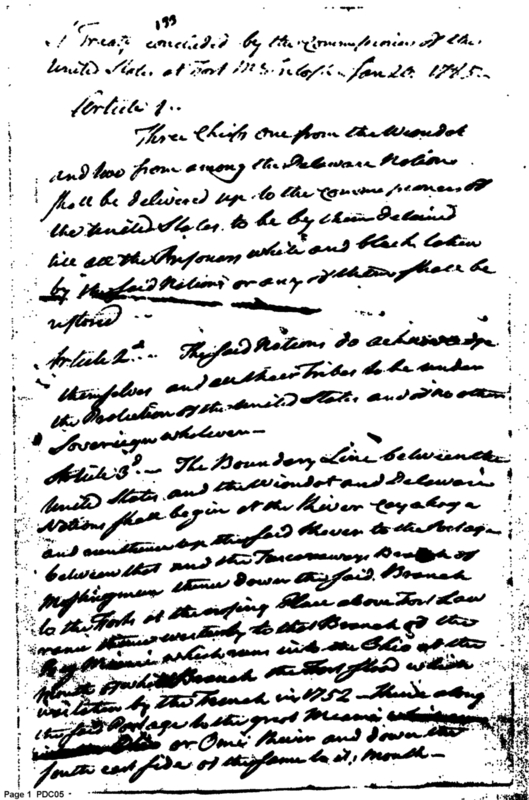 193
A Treaty concluded by the Commissioners of the
United States at Fort McIntosh Jan 20. 1785.
Article 1.
Three Chiefs one from the Wiondot
and two from among the Delaware Nation
shall be delivered up to the commissioners of
the United States to be by them detained
till all the Prisoners white and black taken
by the said Nations or any of them shall be
restored
Article 2d. The said Nations do acknowledge
themselves and all their Tribes to be under
the Protection of the United States and of no other
Sovereign whatever—
Article 3d.— The Boundary Line between the
United States and the Wiondot and Delaware
Nations shall begin at the River Cayahoga
and run thence up the said River to the Portage
between that and the Tuscarawas Branch of
thence down the said Branch
to the Forks at the crossing Place above Fort Law
rance thence westerly to that Branch of the
Big Miami which runs into the Ohio at the
mouth of which Branch the Fort stood which
was taken by the French in 1752 — thence along
the said Portage to the great Miami
or Ome River and down the
south east side of the same to its mouth—
Page 1 PDC05